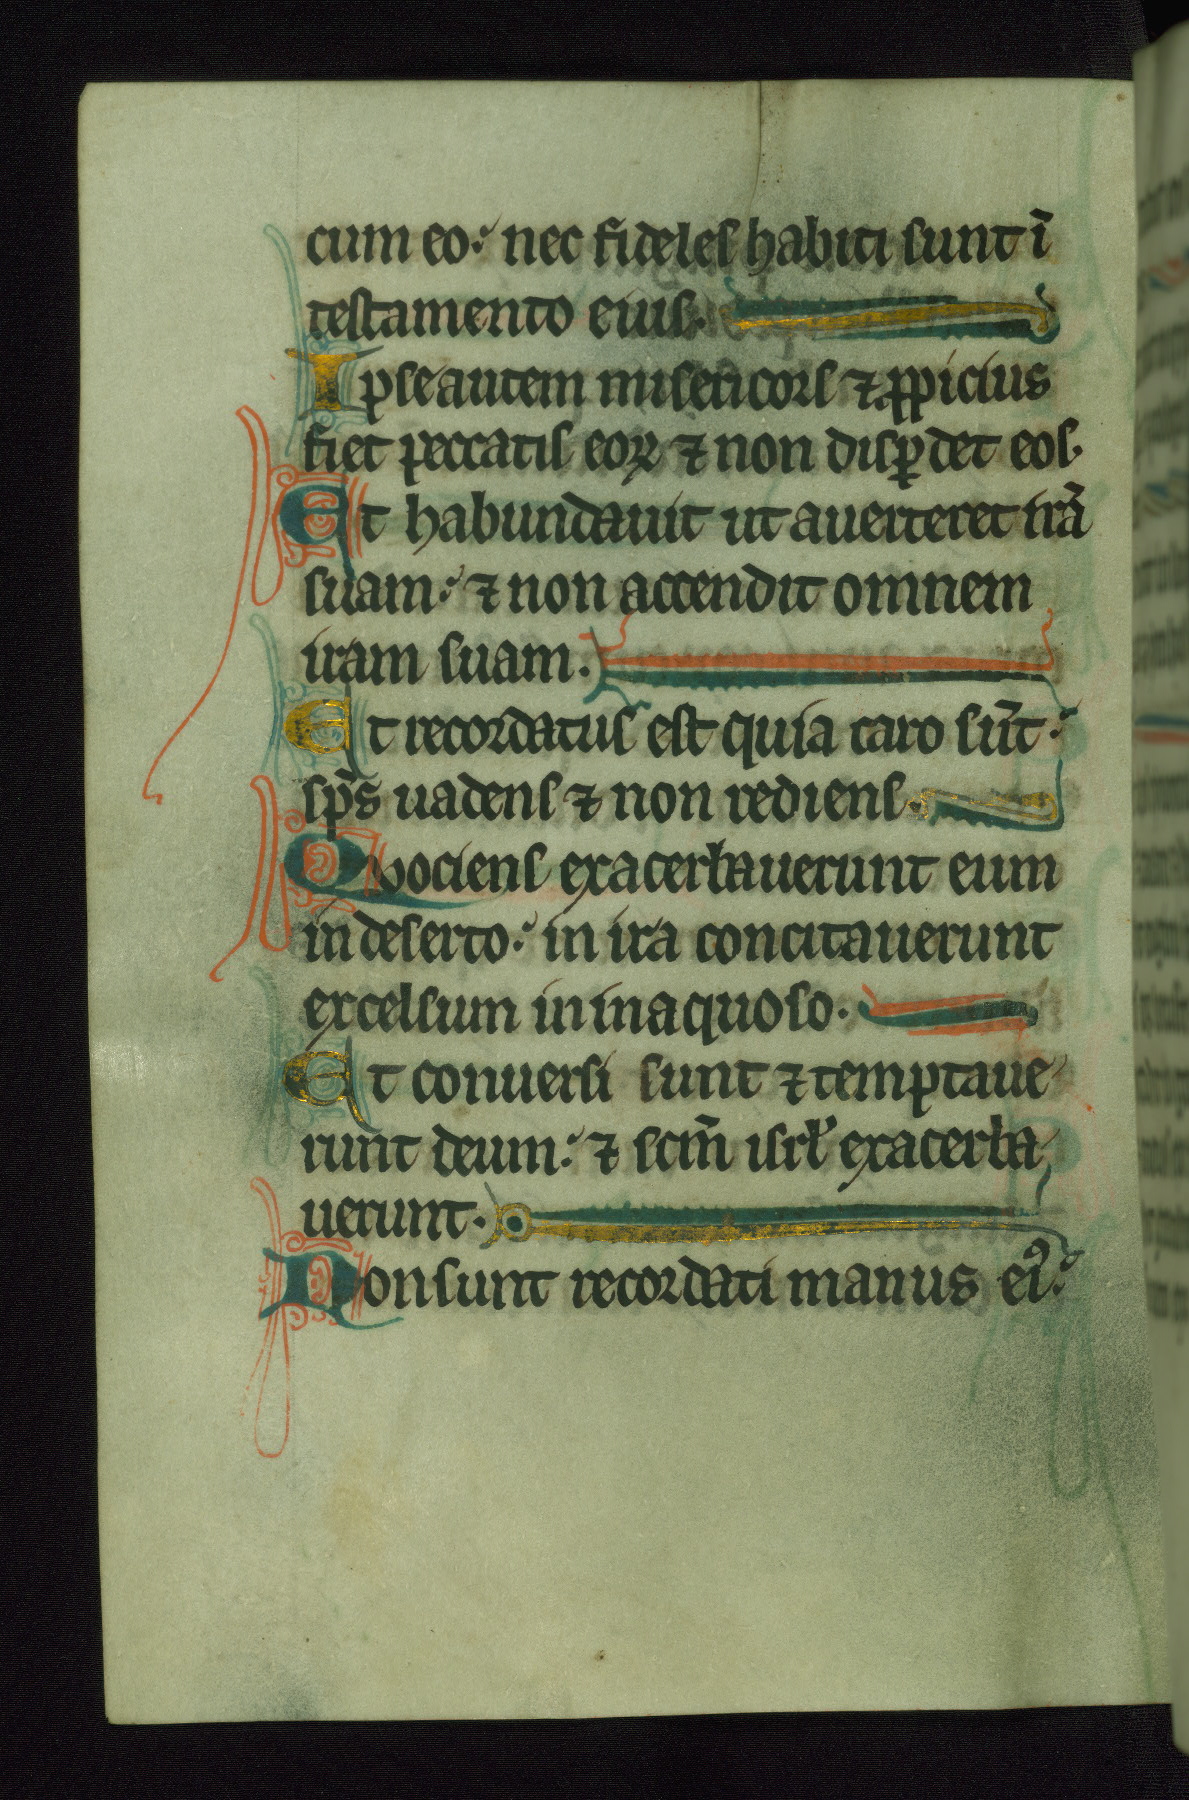 cum eo: nec fideles habiti sunt ī
testamento eius.
Ipse autem misericors ⁊ ꝓpicius
fiet peccatis eoꝝ ⁊ non disꝑdet eos.
Et habundauit ut auerteret irā
suam: ⁊ non accendit omnem
iram suam.
Et recordatus est quia caro sūt:
sp̄s uadens ⁊ non rediens.
Quociens exacerbauerunt eum
in deserto: in ira concitauerunt
excelsum in inaquoso.
Et conuersi sunt ⁊ temptaue
runt deum: ⁊ scm̄ isrl̓ exacerba
uerunt.
Non sunt recordati manus eiꝰ: